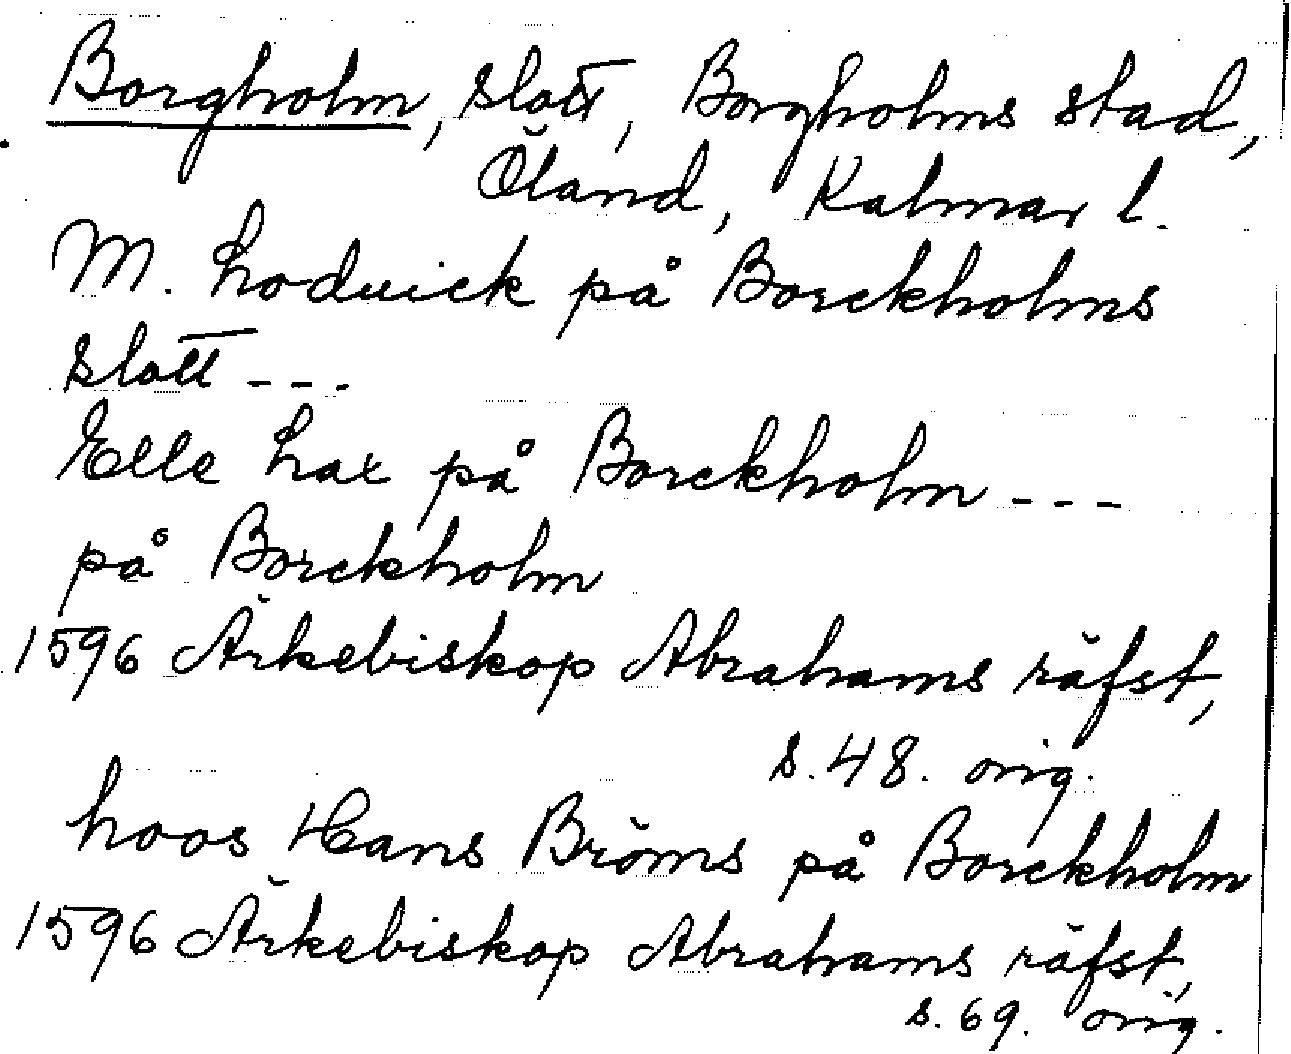 Borgholm, slott, Borgholms stad,
Öland, Kalmar l.
M. Loduick på Borckholms
slott - - -
Elle Lax på Borckholm - - -
på Borckholm
1596 Ärkebiskop Abrahams räfst,
s. 48. orig.
hoos Hans Bröms på Borckholm
1596 Ärkebiskop Abrahams räfst,
s. 69. orig.